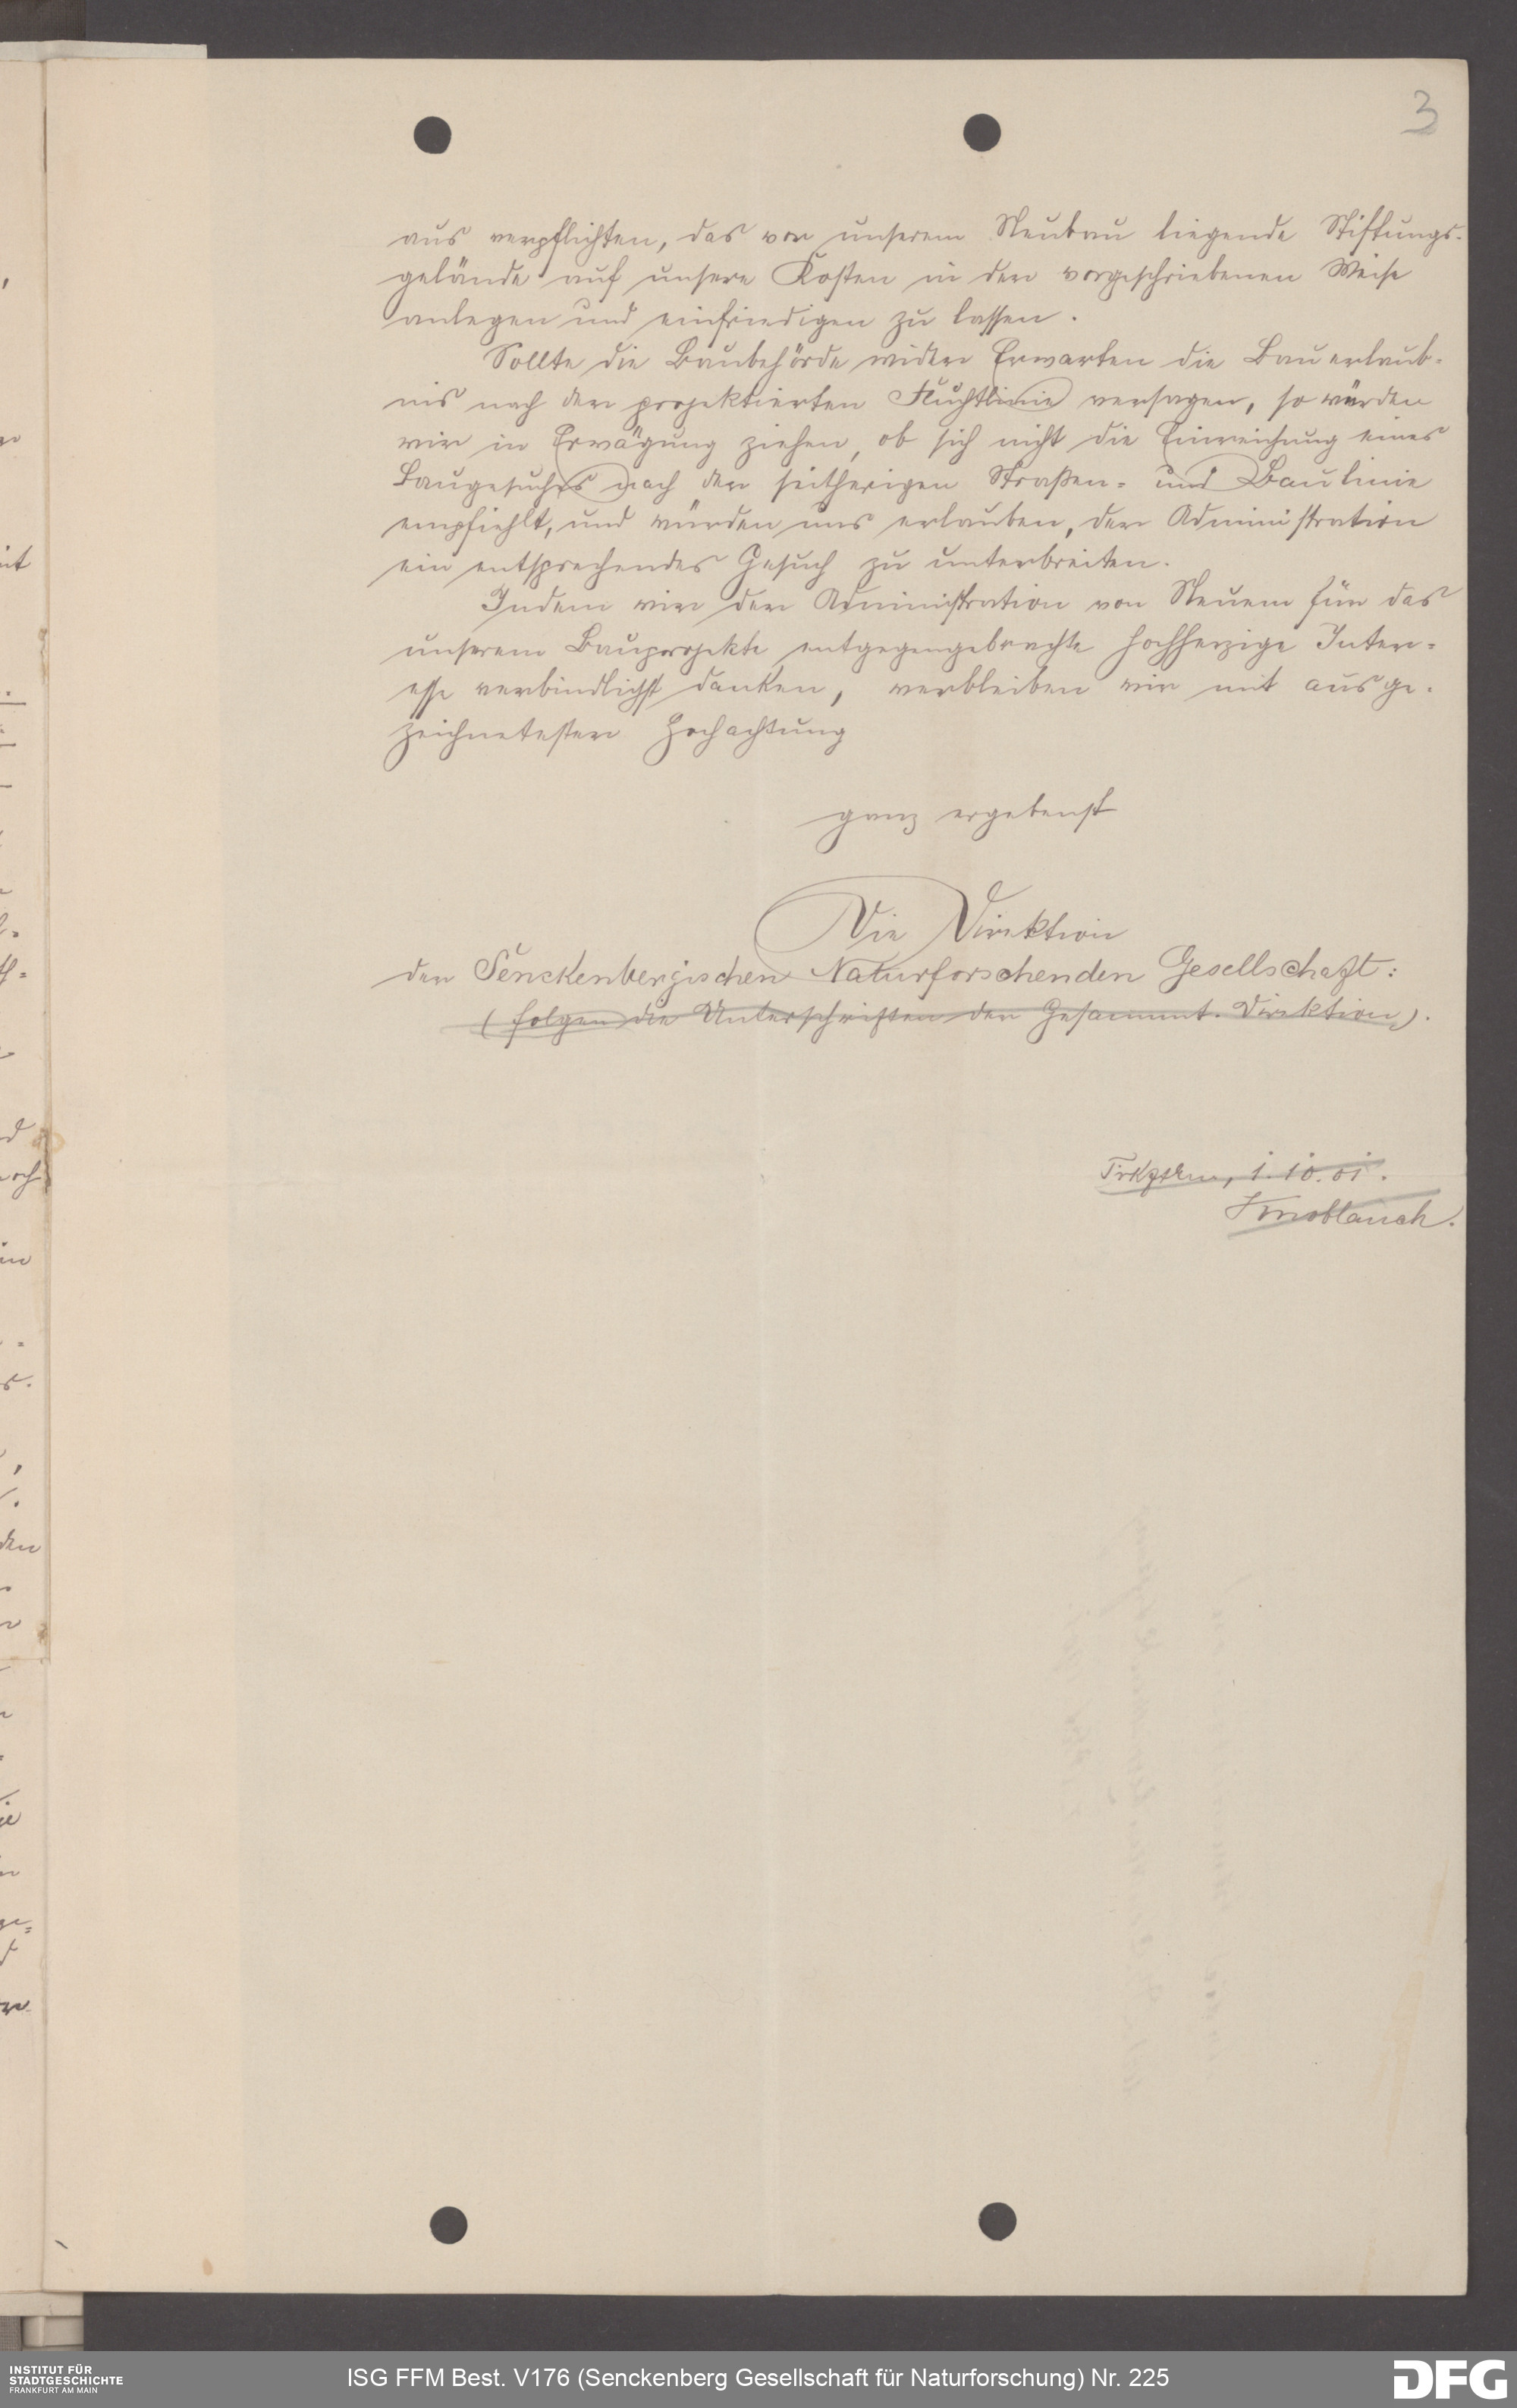 3
aus verpflichten, das vor unserem Neubau liegende Stiftungs-
gelände auf unsere Kosten in der vorgeschriebenen Weise
anlegen und einfriedigen zu lassen.
Sollte die Baubehörde wider Erwarten die Bauerlaub-
nis nach der projektierten Fluchtlinie versagen, so würden
wir in Erwägung ziehen, ob sich nicht die Einreichung eines
Baugesuches nach der seitherigen Straßen- und Baulinie
empfiehlt, und würden uns erlauben, der Administration
ein entsprechendes Gesuch zu unterbreiten.
Indem wir der Administration von Neuem für das
unserem Bauprojekte entgegengebrachte hochherzige Inter-
esse verbindlichst danken, verbleiben wir mit ausge-
zeichnetester Hochachtung
ganz ergebenst
Die Direktion
der Senckenbergischen Naturforschenden Gesellschaft:
(folgen die Unterschriften der Gesammt-Direktion).
1.10.01.
Knoblauch.
INSTITUT FÜR
STADTGESCHICHTE
FRANKFURT AM MAIN
ISG FFM Best. V176 (Senckenberg Gesellschaft für Naturforschung) Nr. 225
DFG